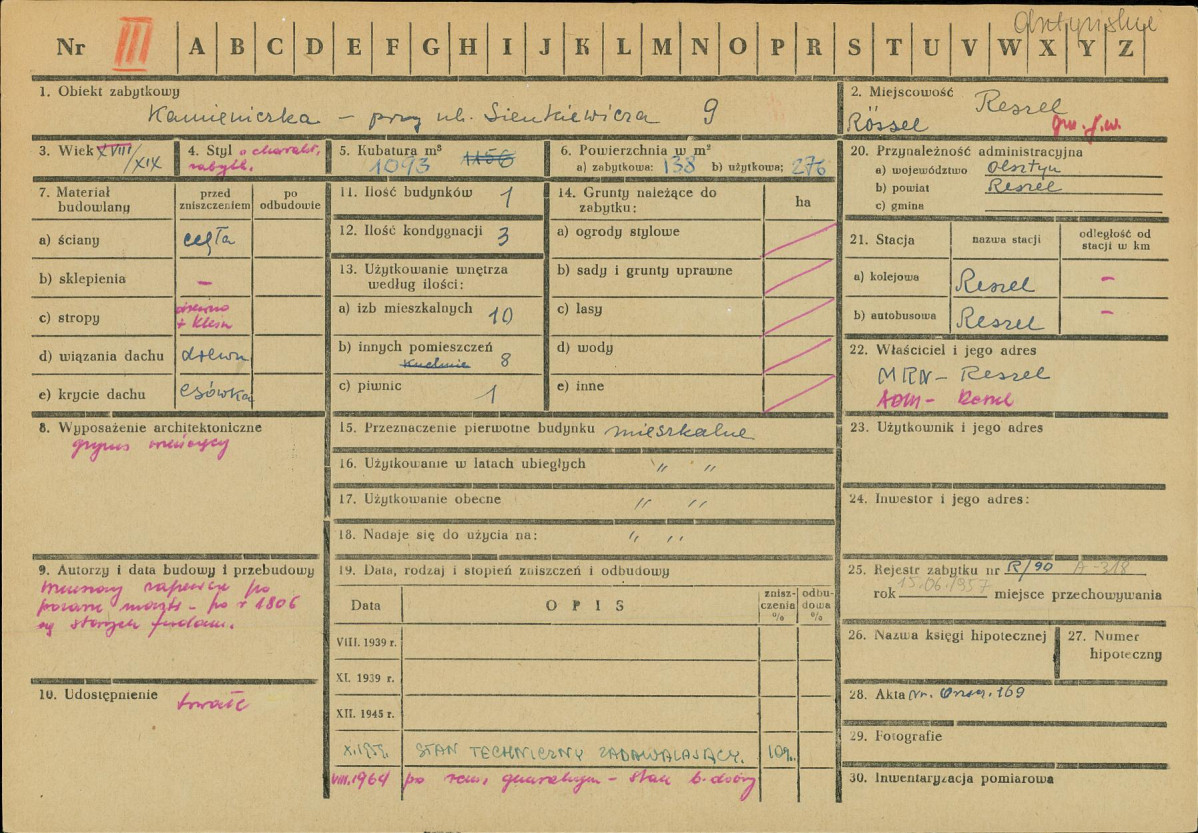 Olsztyńskie
Nr III A B C D E F G H I J K L M N O P R S T U V W X Y Z
1. Obiekt zabytkowy
Kamieniczka – przy ul. Sienkiewicza 9
2. Miejscowość Reszel
Rössel gm. j.w.
3. Wiek XVIII/XIX
4. Styl o charakt. zabytk.
5. Kubatura m³
1093 1156
6. Powierzchnia w m²
a) zabytkowa: 138 b) użytkowa: 276
20. Przynależność administracyjna
a) województwo Olsztyn
b) powiat Reszel
c) gmina
7. Materiał budowlany
przed zniszczeniem
po odbudowie
a) ściany cegła
b) sklepienia –
c) stropy drewno
d) wiązania dachu drewn
e) krycie dachu esówka
11. Ilość budynków 1
12. Ilość kondygnacji 3
13. Użytkowanie wnętrza
według ilości:
a) izb mieszkalnych 10
b) innych pomieszczeń
kuchnie 8
c) piwnic 1
14. Grunty należące do
zabytku:
ha
a) ogrody stylowe
b) sady i grunty uprawne
c) lasy
d) wody
e) inne
21. Stacja
nazwa stacji
odległość od
stacji w km
a) kolejowa Reszel –
b) autobusowa Reszel –
22. Właściciel i jego adres
MRN – Reszel
ADM – Reszel
8. Wyposażenie architektoniczne
gzyms wieńczący
15. Przeznaczenie pierwotne budynku mieszkalne
16. Użytkowanie w latach ubiegłych " "
17. Użytkowanie obecne " "
18. Nadaje się do użycia na: " "
23. Użytkownik i jego adres
24. Inwestor i jego adres:
9. Autorzy i data budowy i przebudowy
po
– po r 1806
na starych fundam.
10. Udostępnienie
19. Data, rodzaj i stopień zniszczeń i odbudowy
Data
OPIS
znisz-
czenia
%
odbu-
dowa
%
VIII. 1939 r.
XI. 1939 r.
XII. 1945 r.
STAN TECHNICZNY ZADAWALAJĄCY.
VIII.1964 po rem. – stan b. dobry
25. Rejestr zabytku nr R/90 A-318
rok 15.06.1957 miejsce przechowywania
26. Nazwa księgi hipotecznej
27. Numer
hipoteczny
28. Akta 169
29. Fotografie
30. Inwentaryzacja pomiarowa